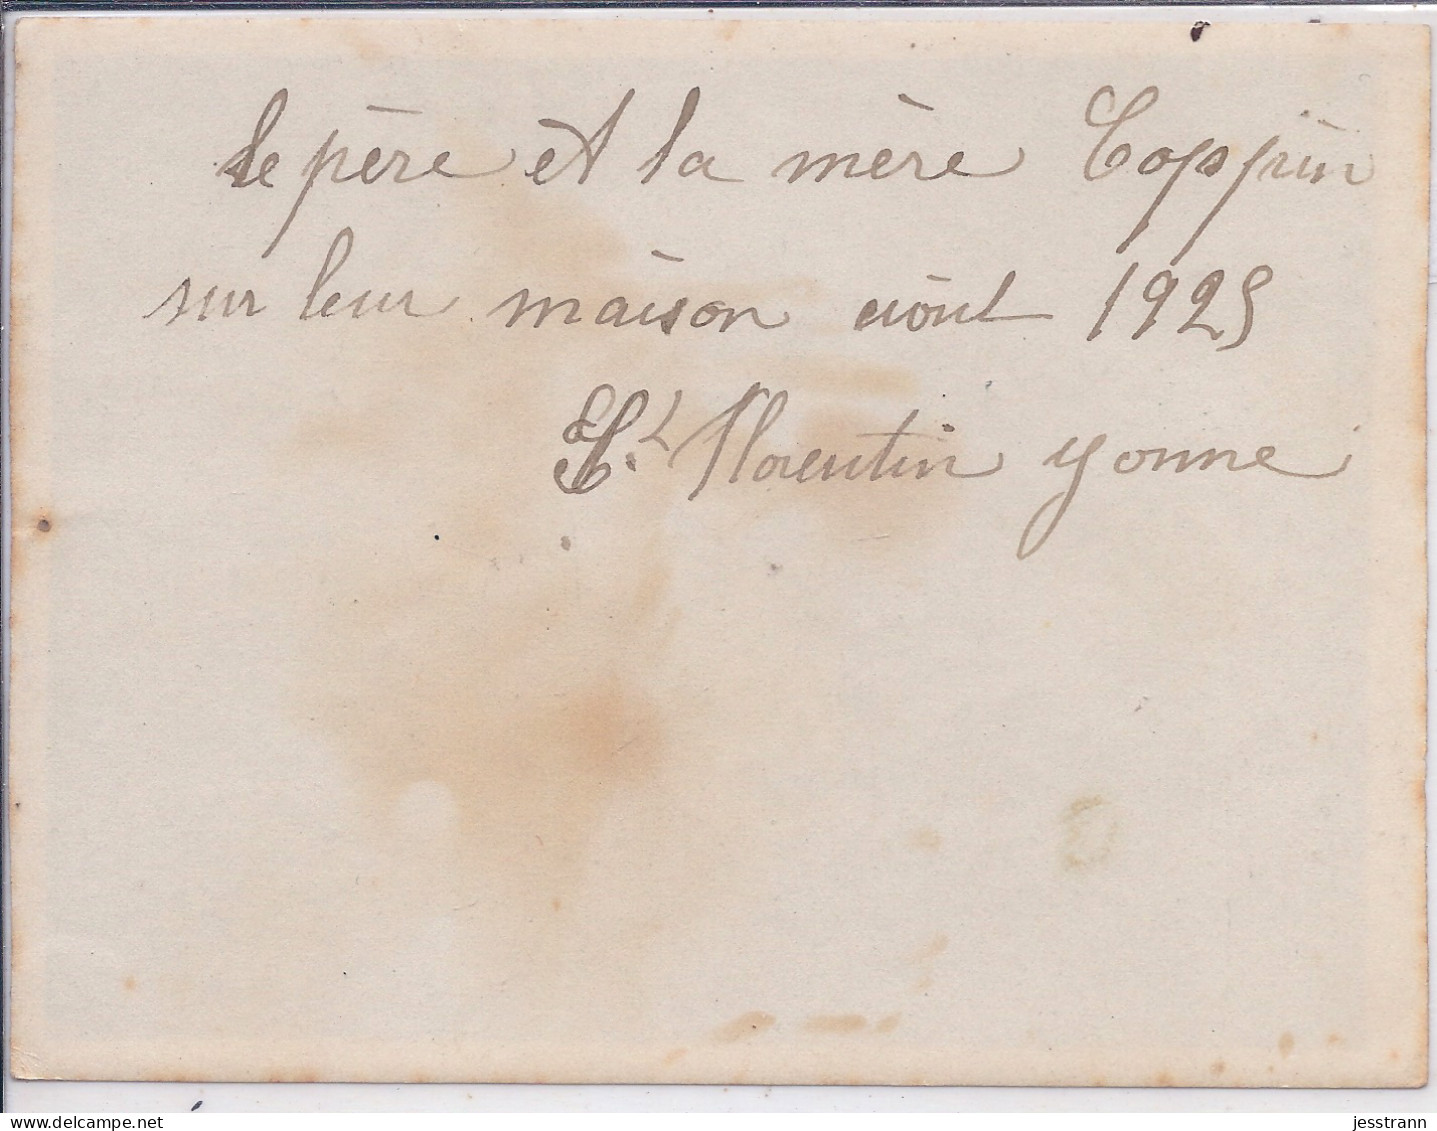 le père et la mère Coppin
sur leur maison août 1925
St Florentin yonne
jesstrann
www.delcampe.net